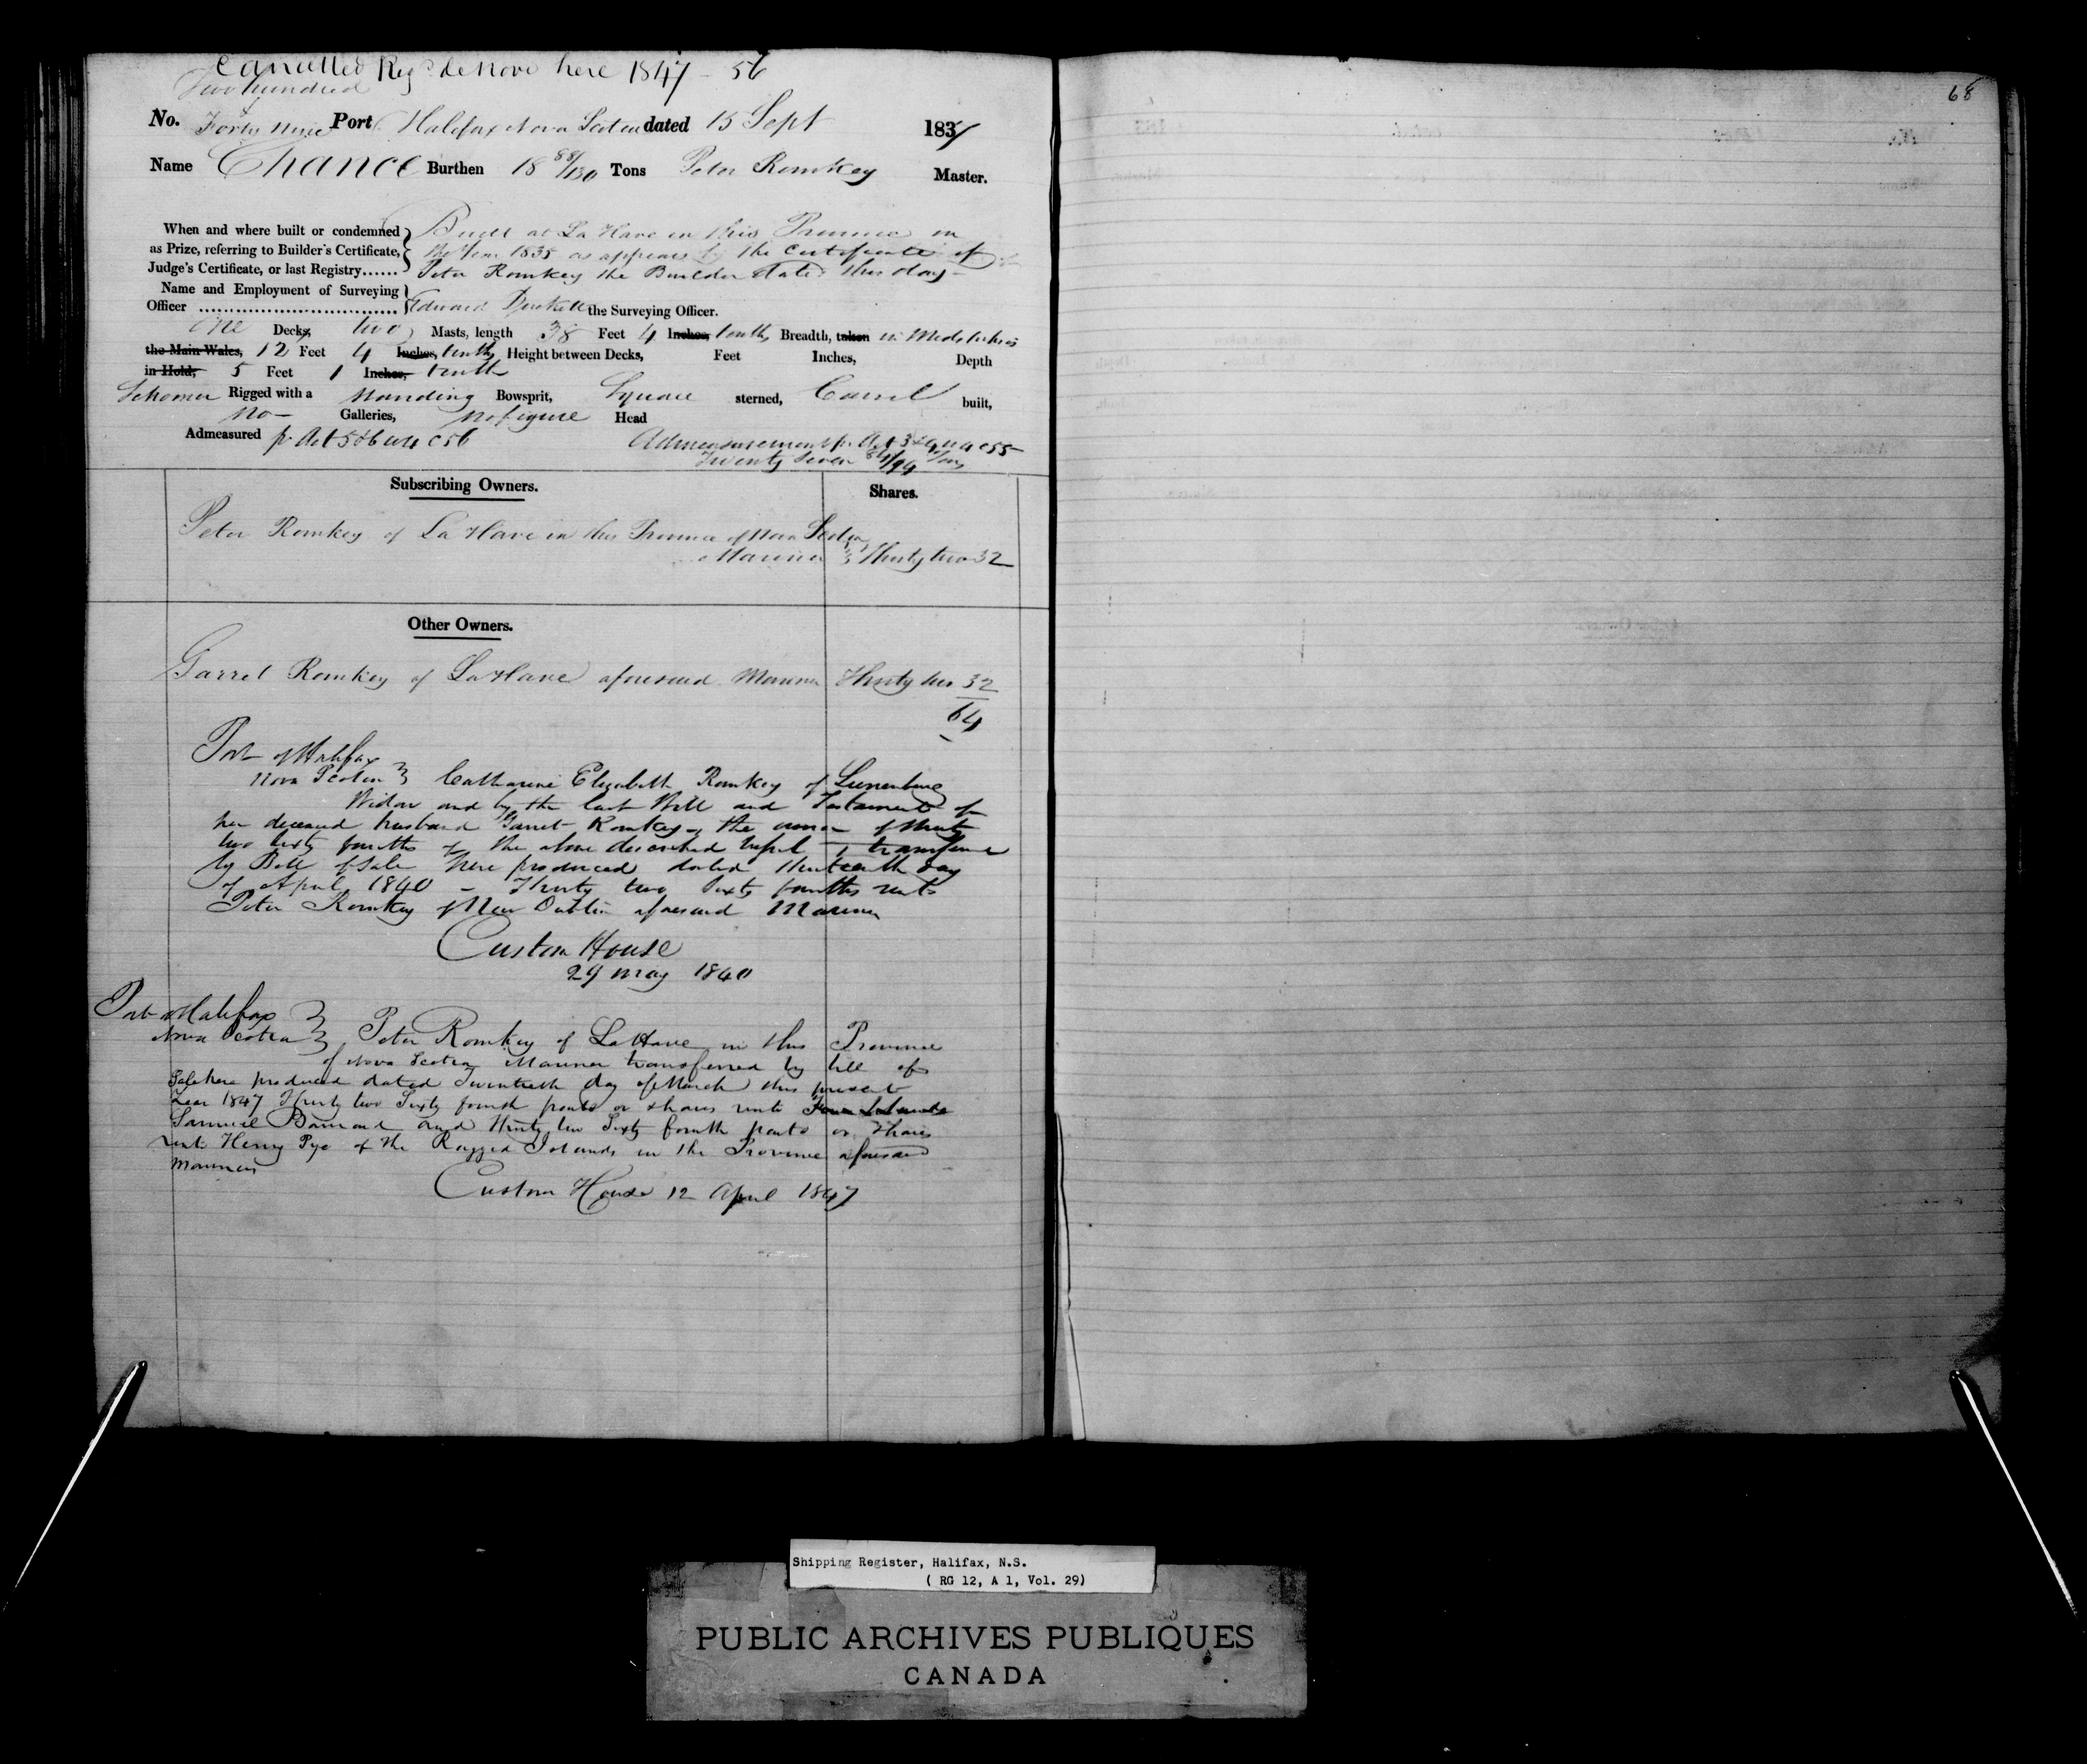 Cancelled Reg<sup>d</sup> de Novo here 1847 - 56
Two hundred
No. Forty Nine Port Halifax Nova Scotia dated 15 Sept 183
Name Chance Burthen 18 88/130 Tons Peter Romkey Master.
When and where built or condemned Built at La Have in this Province in
as Prize, referring to Builder's Certificate, the Year 1835 as appears by the Certificate of
Judge's Certificate, or last Registry...... Peter Romkey the Builder dated this day
Name and Employment of Surveying
Officer ................................ Edward the Surveying Officer.
One Decks, two Masts, length 38 Feet 4 Inches, tenths Breadth, taken in Midships
the Main Wales, 12 Feet 4 Inches, tenths Height between Decks, Feet Inches, Depth
in Hold, 5 Feet 1 Inches, tenth
Schooner Rigged with a Standing Bowsprit, Square sterned, Carvel built,
no Galleries, no figure Head
Admeasured pr Act 5 & 6 W 4 C 56 Admeasurement pr Act
Twenty Seven Tons
Subscribing Owners. Shares.
Peter Romkey of La Have in this Province of Nova Scotia
Mariner Thirty two 32
Other Owners.
Garret Romkey of La Have aforesaid Mariner Thirty two 32
64
Port of Halifax
Nova Scotia Catharine Elizabeth Romkey of Lunenburg
Widow and by the last Will and Testament of
her deceased husband Garret Romkey the owner of thirty
two sixty fourths of the above described vessel transferred
by Bill of Sale here produced dated thirteenth day
of April 1840 - Thirty two Sixty fourths unto
Peter Romkey of New Dublin aforesaid Mariner
Custom House
29 May 1840
Port Halifax
Nova Scotia Peter Romkey of La Have in this Province
of Nova Scotia Mariner transferred by bill of
Sale here produced dated Twentieth day of March this present
Year 1847 Thirty two Sixty fourth parts or shares unto
Samuel and Thirty two Sixty fourth parts or Shares
unto Henry Pye of the Ragged Islands in the Province aforesaid
Mariners
Custom House 12 April 1847
68
Shipping Register, Halifax, N.S.
( RG 12, A 1, Vol. 29)
PUBLIC ARCHIVES PUBLIQUES
CANADA